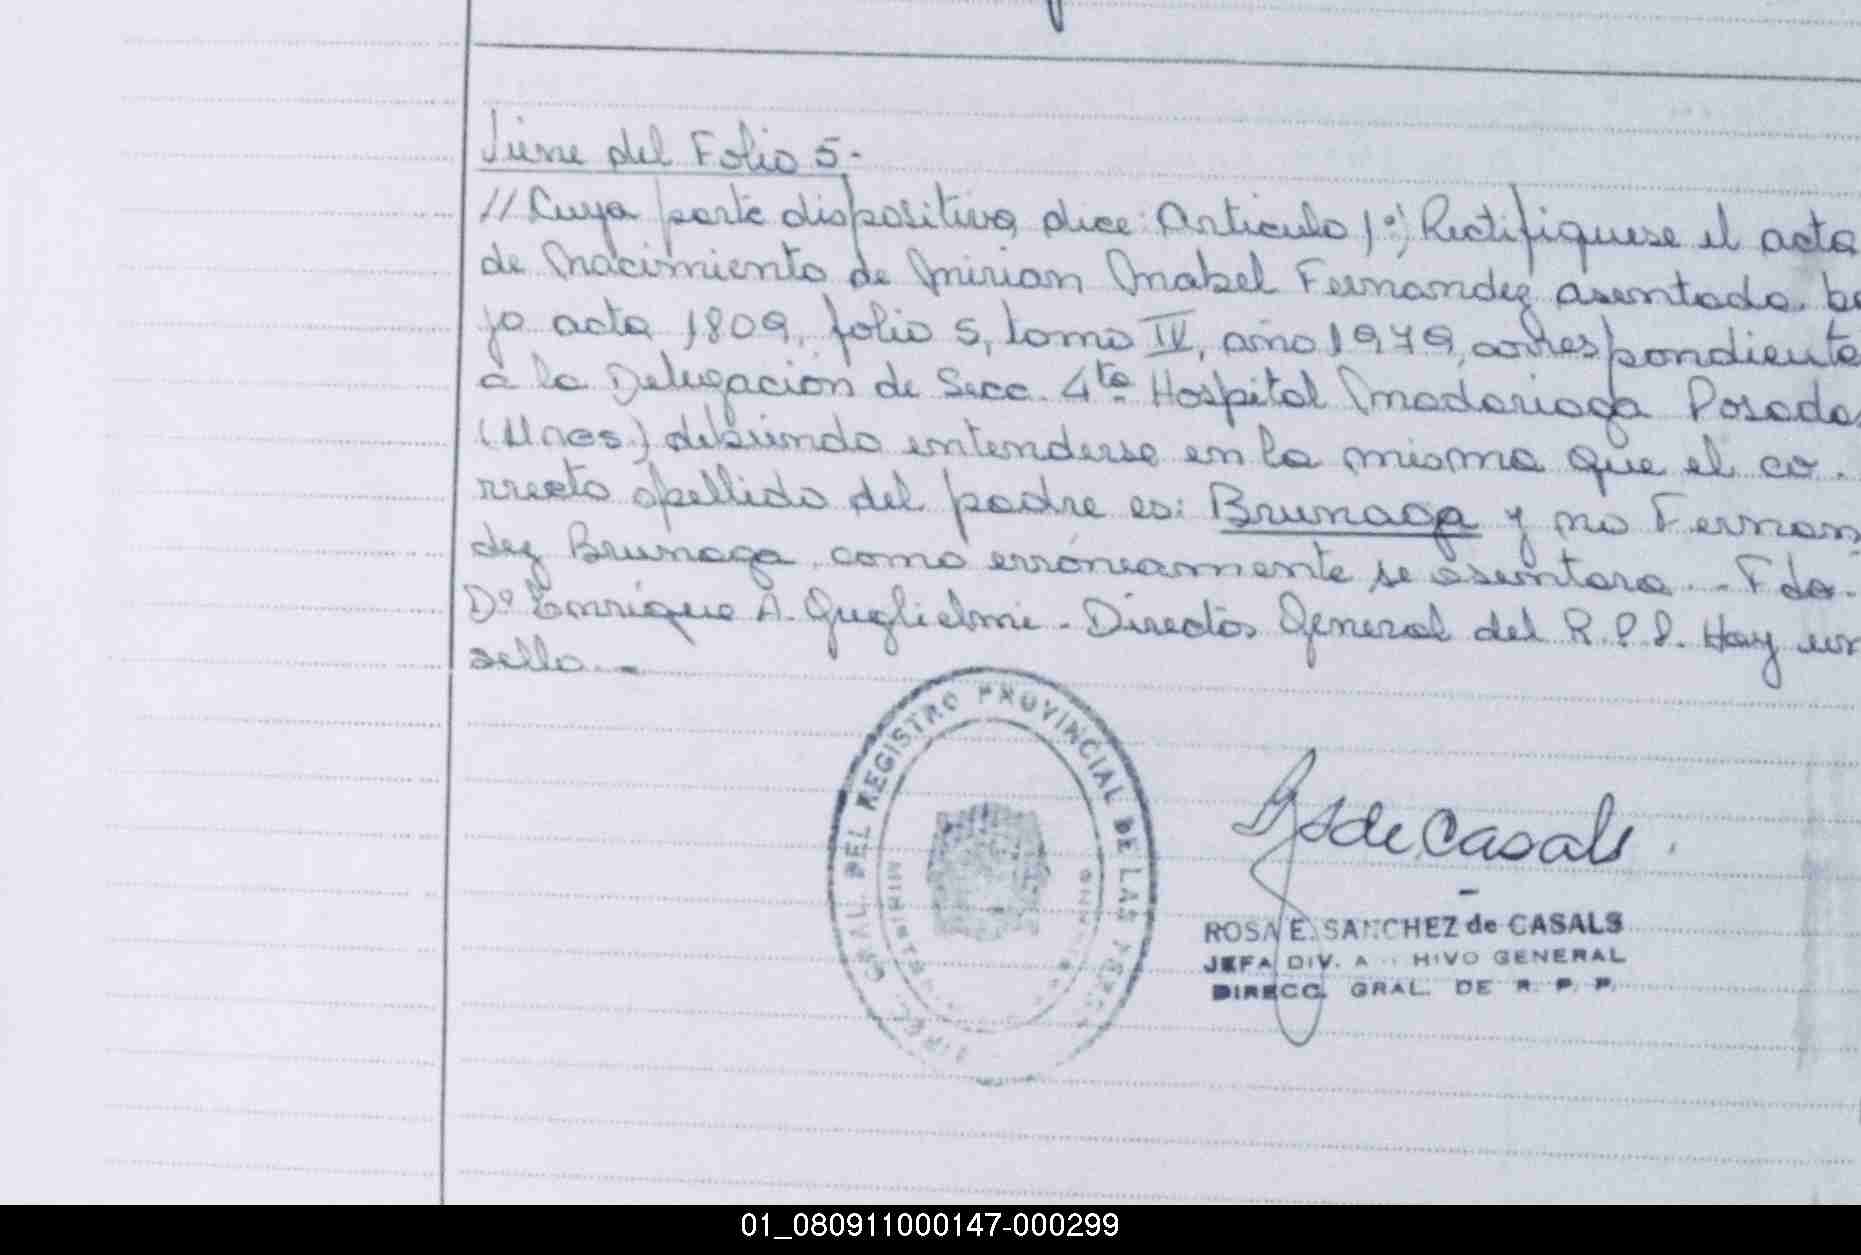 Viene del Folio 5.-
// Cuya parte dispositiva dice: Articulo 1º) Rectifiquese el acta
de Nacimiento de Mirian Mabel Fernandez asentada ba
jo acta 1809, folio 5, tomo IV, año 1979, correspondiente
a la Delegación de Secc. 4ta Hospital Madariaga Posadas
(Mnes.) debiendo entenderse en la misma que el co-
rrecto apellido del padre es: Brunaga y no Fernan
dez Brunaga como erróneamente se asentara.- Fdo.
Dº Enrique A. Guglielmi - Director General del R.P.P. Hay un
sello.-
DIREC. GRAL. DEL REGISTRO PROVINCIAL DE LAS PERS
MINISTERIO
S de Casals
ROSA E. SANCHEZ de CASALS
JEFA DIV. A HIVO GENERAL
DIRECC. GRAL. DE R. P. P.
01_080911000147-000299